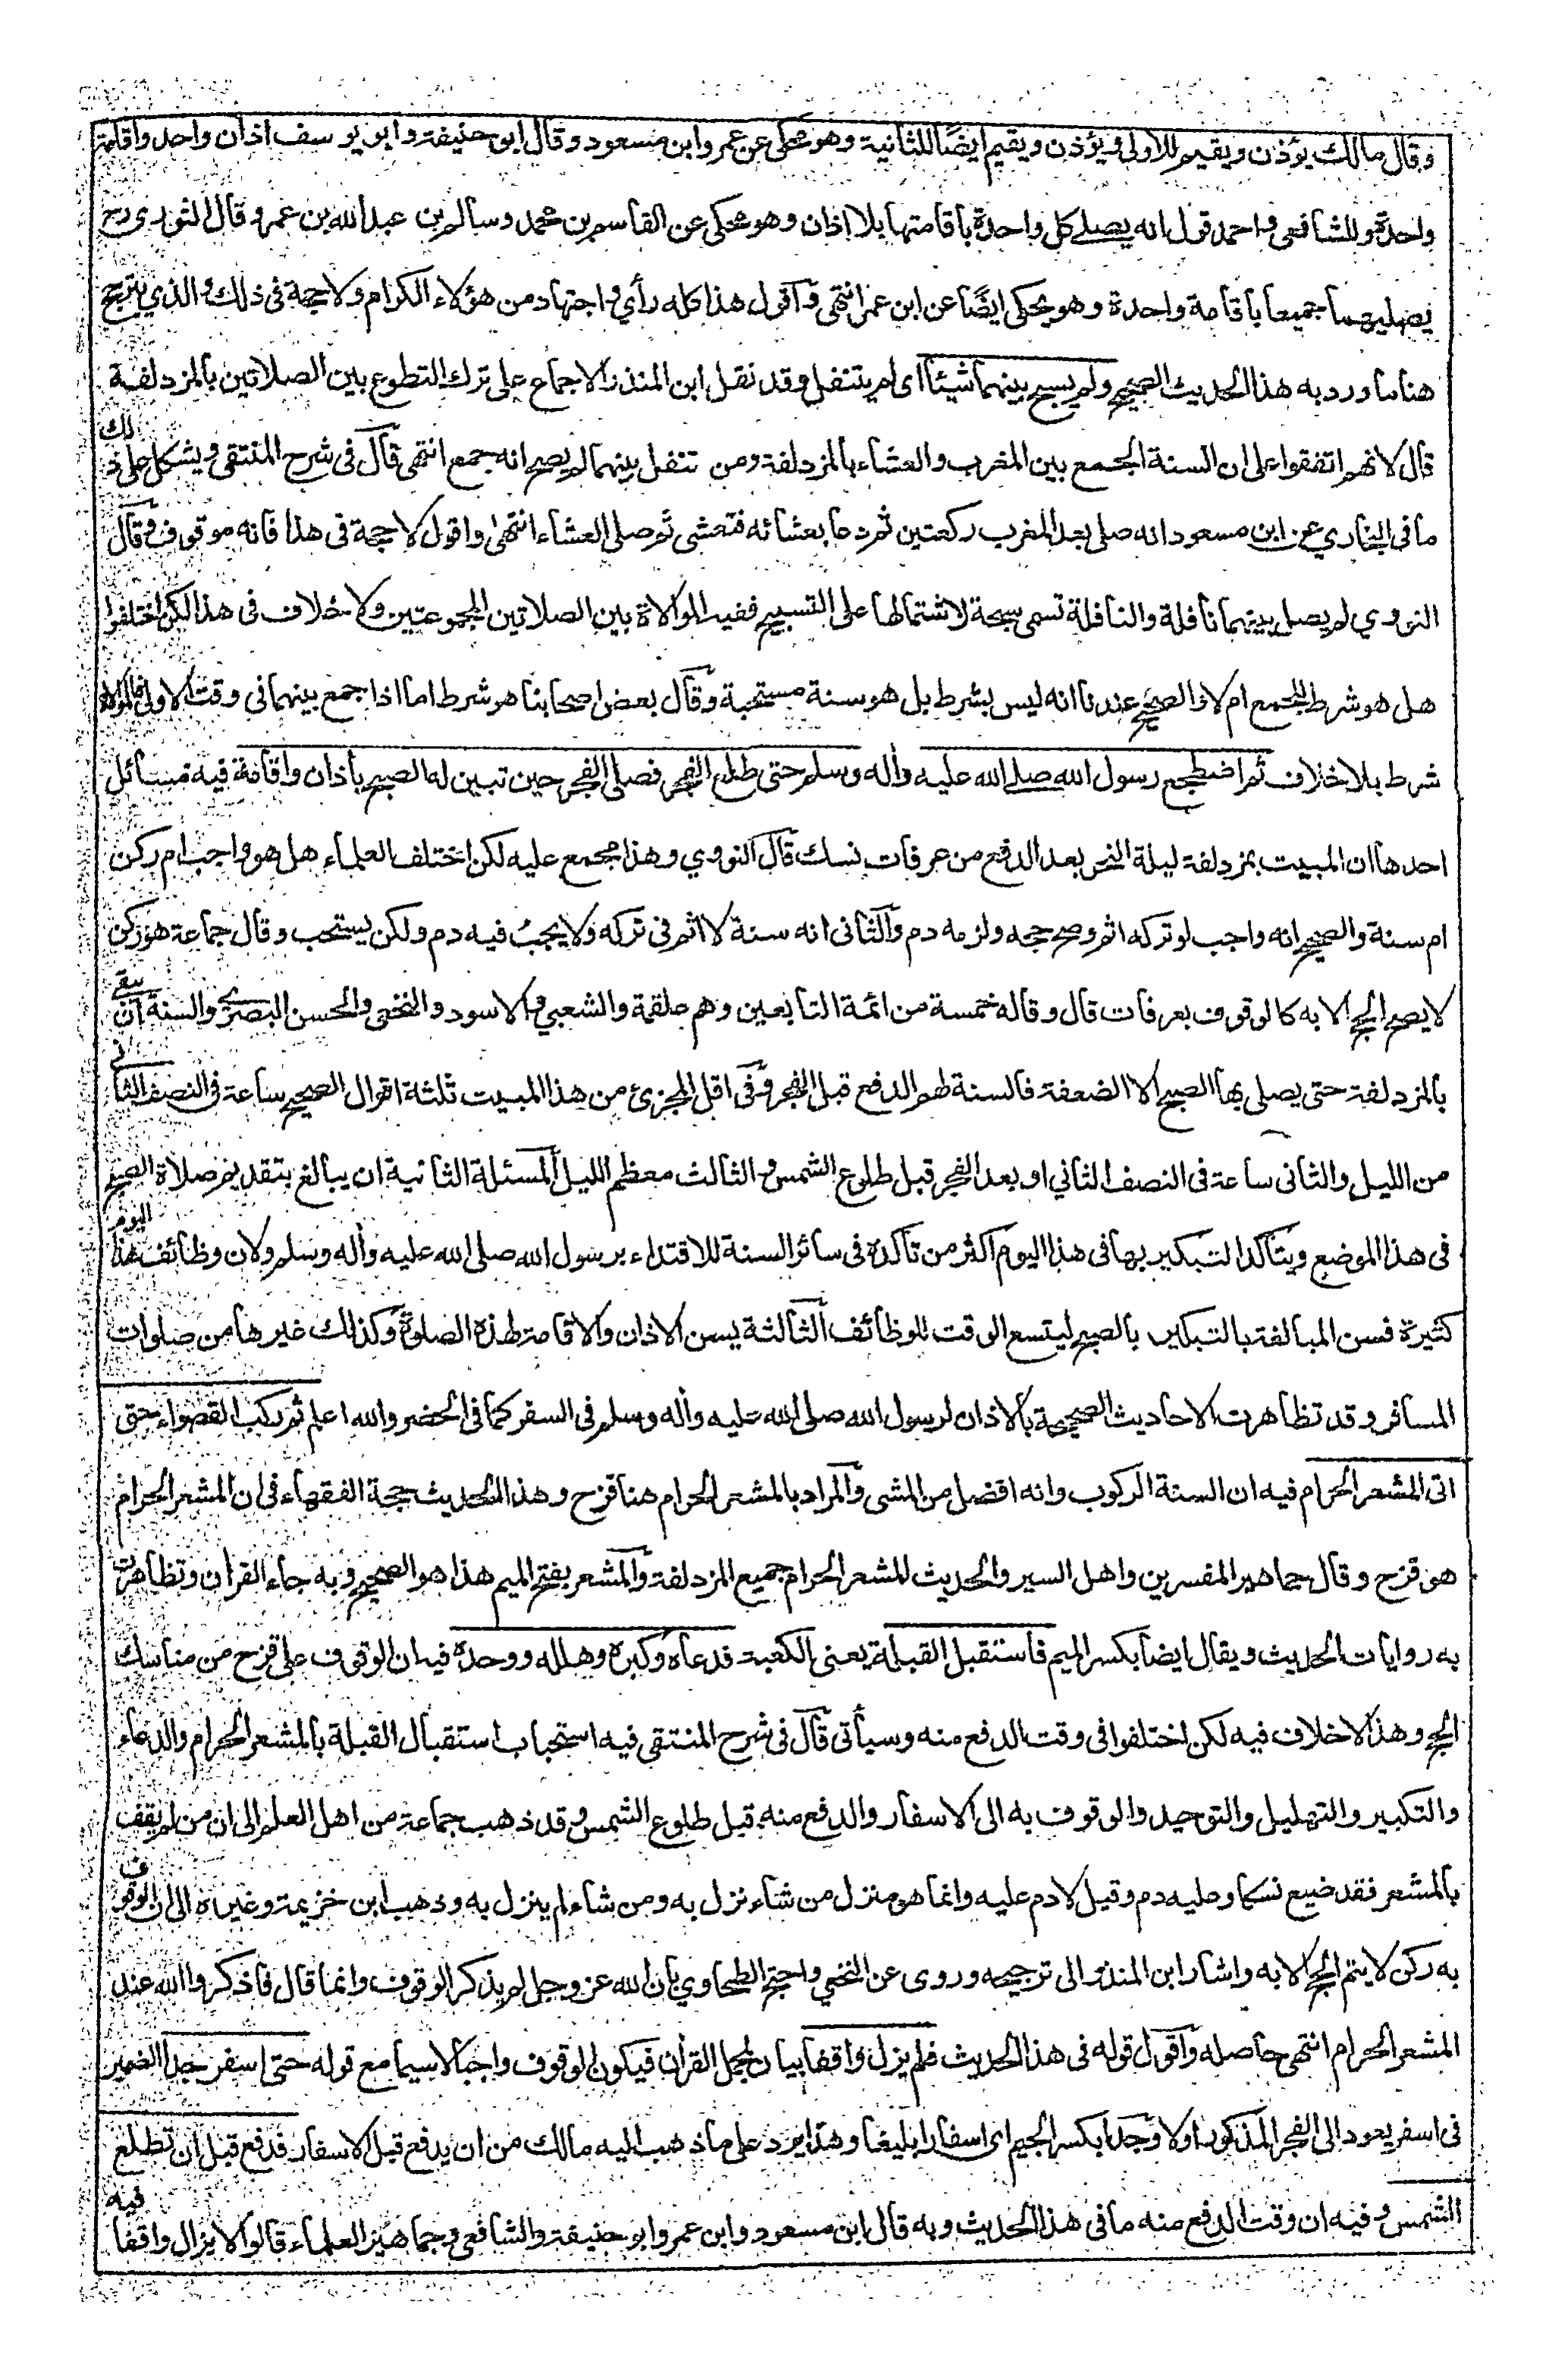 وقال مالك يؤذن ويقيم للاولى ويؤذن ويقيم ايضًا للثانية وهو محكى عن عمر وابن مسعود وقال ابو حنيفة وابو يوسف اذان واحد واقامة
واحدة وللشافعى واحمد قول انه يصلى كل واحدة باقامتها بلا اذان وهو محكى عن القاسم بن محمد وسالم بن عبدالله بن عمر وقال الثورى رح
يصليهما جميعا باقامة واحدة وهو يحكى ايضًا عن ابن عمر انتهى واقول هذا كله رأي واجتهاد من هؤلاء الكرام ولا حجة فى ذلك والذي يترجح
هنا ما ورد به هذا الحديث الصحيح ولم يسبح بينهما شيئا اى لم يتنفل وقد نقل ابن المنذر الاجماع على ترك التطوع بين الصلاتين بالمزدلفة
قال لانهم اتفقوا على ان السنة الجمع بين المغرب والعشاء بالمزدلفة ومن تنفل بينهما لم يصح انه جمع انتهى قال فى شرح المنتقى ويشكل على ذلك
ما فى البخاري عن ابن مسعود انه صلى بعد المغرب ركعتين ثم دعا بعشائه فتعشى ثم صلى العشاء انتهى واقول لا حجة فى هذا فانه موقوف وقال
النووي لم يصل بينهما نافلة والنافلة تسمى سبحة لاشتمالها على التسبيح ففيه الموالاة بين الصلاتين المجموعتين ولا خلاف فى هذا لكن اختلفوا
هل هو شرط للجمع ام لا والصحيح عندنا انه ليس بشرط بل هو سنة مستحبة وقال بعض اصحابنا هو شرط اما اذا جمع بينهما فى وقت الاولى فالموالاة
شرط بلا خلاف ثم اضطجع رسول الله صلى الله عليه وأله وسلم حتى طلع الفجر فصلى الفجر حين تبين له الصبح باذان واقامة فيه مسائل
احدها ان المبيت بمزدلفة ليلة النحر بعد الدفع من عرفات نسك قال النووي وهذا مجمع عليه لكن اختلف العلماء هل هو واجب ام ركن
ام سنة والصحيح انه واجب لو تركه اثم وصح حجه ولزمه دم والثانى انه سنة لا اثم فى تركه ولا يجب فيه دم ولكن يستحب وقال جماعة هو ركن
لا يصح الحج الا به كالوقوف بعرفات قال وقاله خمسة من ائمة التابعين وهم علقمة والشعبي والاسود والنخعى والحسن البصرى والسنة ان يبقى
بالمزدلفة حتى يصلى بها الصبح الا الضعفة فالسنة لهم الدفع قبل الفجر وفى اقل المجزئ من هذا المبيت ثلثة اقوال الصحيح ساعة فى النصف الثانى
من الليل والثانى ساعة فى النصف الثاني او بعد الفجر قبل طلوع الشمس والثالث معظم الليل المسئلة الثانية ان يبالغ بتقديم صلاة الصبح
فى هذا الموضع ويتأكد التبكير بها فى هذا اليوم اكثر من تأكده فى سائر السنة للاقتداء برسول الله صلى الله عليه وأله وسلم ولان وظائف هذا اليوم
كثيرة فسن المبالغة بالتبكير بالصبح ليتسع الوقت للوظائف الثالثة يسن الاذان والاقامة لهذه الصلوة وكذلك غيرها من صلوات
المسافر وقد تظاهرت الاحاديث الصحيحة بالاذان لرسول الله صلى الله عليه وأله وسلم فى السفر كما فى الحضر والله اعلم ثم ركب القصواء حتى
اتى المشعر الحرام فيه ان السنة الركوب وانه افضل من المشى والمراد بالمشعر الحرام هنا قزح وهذا الحديث حجة الفقهاء فى ان المشعر الحرام
هو قزح وقال جماهير المفسرين واهل السير والحديث المشعر الحرام جميع المزدلفة والمشعر بفتح الميم هذا هو الصحيح وبه جاء القرأن وتظاهرت
به روايات الحديث ويقال ايضا بكسر الميم فاستقبل القبلة يعنى الكعبة فدعاه وكبره وهلله ووحده فيه ان الوقوف على قزح من مناسك
الحج وهذا لا خلاف فيه لكن اختلفوا فى وقت الدفع منه وسيأتى قال فى شرح المنتقى فيه استحباب استقبال القبلة بالمشعر الحرام والدعاء
والتكبير والتهليل والتوحيد والوقوف به الى الاسفار والدفع منه قبل طلوع الشمس وقد ذهب جماعة من اهل العلم الى ان من لم يقف
بالمشعر فقد ضيع نسكا وعليه دم وقيل لا دم عليه وانما هو منزل من شاء نزل به ومن شاء لم ينزل به وذهب ابن خزيمة وغيره الى ان الوقوف
به ركن لا يتم الحج الا به واشار ابن المنذر الى ترجيحه وروى عن النخعي واحتج الطحاوي بان الله عز وجل لم يذكر الوقوف وانما قال فاذكروا الله عند
المشعر الحرام انتهى حاصله واقول قوله فى هذا الحديث فلم يزل واقفا بيان لمجمل القرأن فيكون الوقوف واجبا لاسيما مع قوله حتى اسفر جدا الضمير
فى اسفر يعود الى الفجر المذكور اولا وجدا بكسر الجيم اى اسفارا بليغا وهذا يرد على ما ذهب اليه مالك من ان يدفع قبل الاسفار فدفع قبل ان تطلع
الشمس وفيه ان وقت الدفع منه ما فى هذا الحديث وبه قال ابن مسعود وابن عمر وابو حنيفة والشافعى وجماهير العلماء قالوا لا يزال واقفا فيه